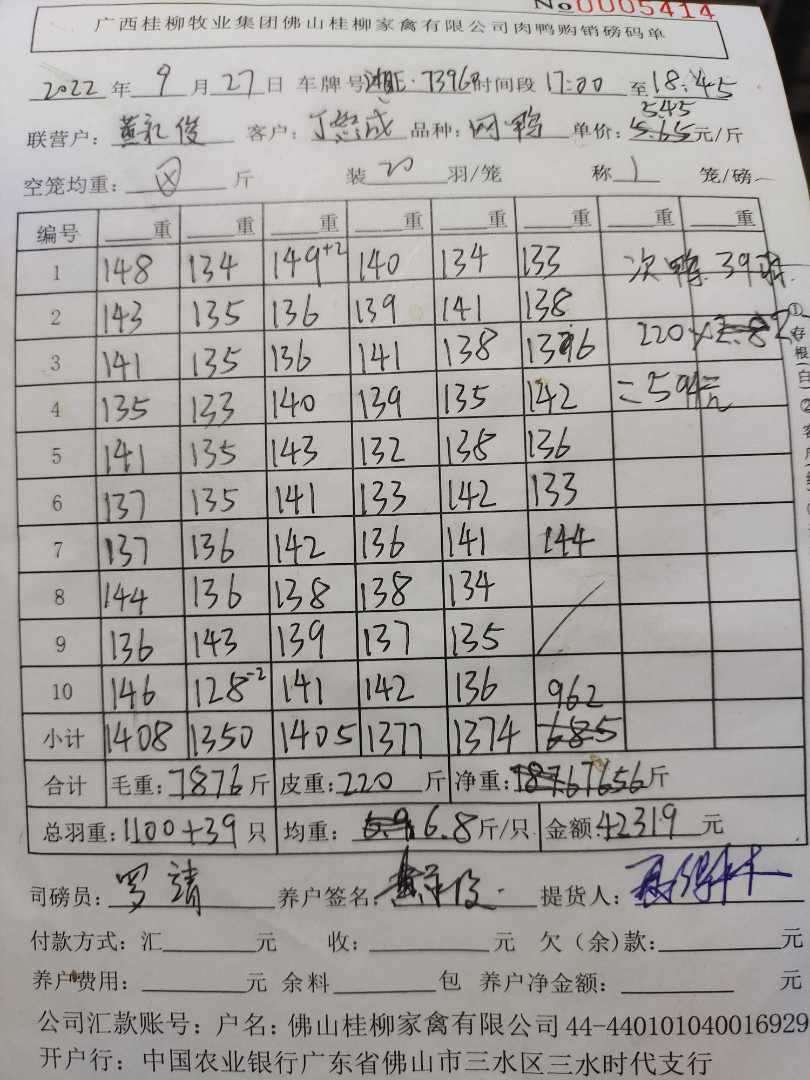 No0005414
广西桂柳牧业集团佛山桂柳家禽有限公司肉鸭购销磅码单
2022年9月27日 车牌号 湘E·7396 时间段 17:00 至 18:45
5.45
联营户: 黄礼俊 客户: 丁 成 品种: 网鸭 单价: 5.65 元/斤
空笼均重: 斤 装 20 羽/笼 称 1 笼/磅
编号 重 重 重 重 重 重 重 重
1 148 134 149+2 140 134 133 次鸭 39
2 143 135 136 139 141 138
3 141 135 136 141 138 136 220×
4 135 133 140 139 135 142 =594元
5 141 135 143 132 138 136
6 137 135 141 133 142 133
7 137 136 142 136 141 144
8 144 136 138 138 134
9 136 143 139 137 135
10 146 128-2 141 142 136 962
小计 1408 1350 1405 1377 1374 685
合计 毛重: 7876 斤 皮重: 220 斤 净重: 7656 斤
总羽重: 1100+39 只 均重: 6.8 斤/只 金额: 42319 元
司磅员: 罗靖 养户签名: 提货人:
付款方式: 汇 元 收: 元 欠(余)款: 元
养户费用: 元 余料 包 养户净金额: 元
公司汇款账号: 户名: 佛山桂柳家禽有限公司 44-440101040016929
开户行: 中国农业银行广东省佛山市三水区三水时代支行
①存根(白)②客户